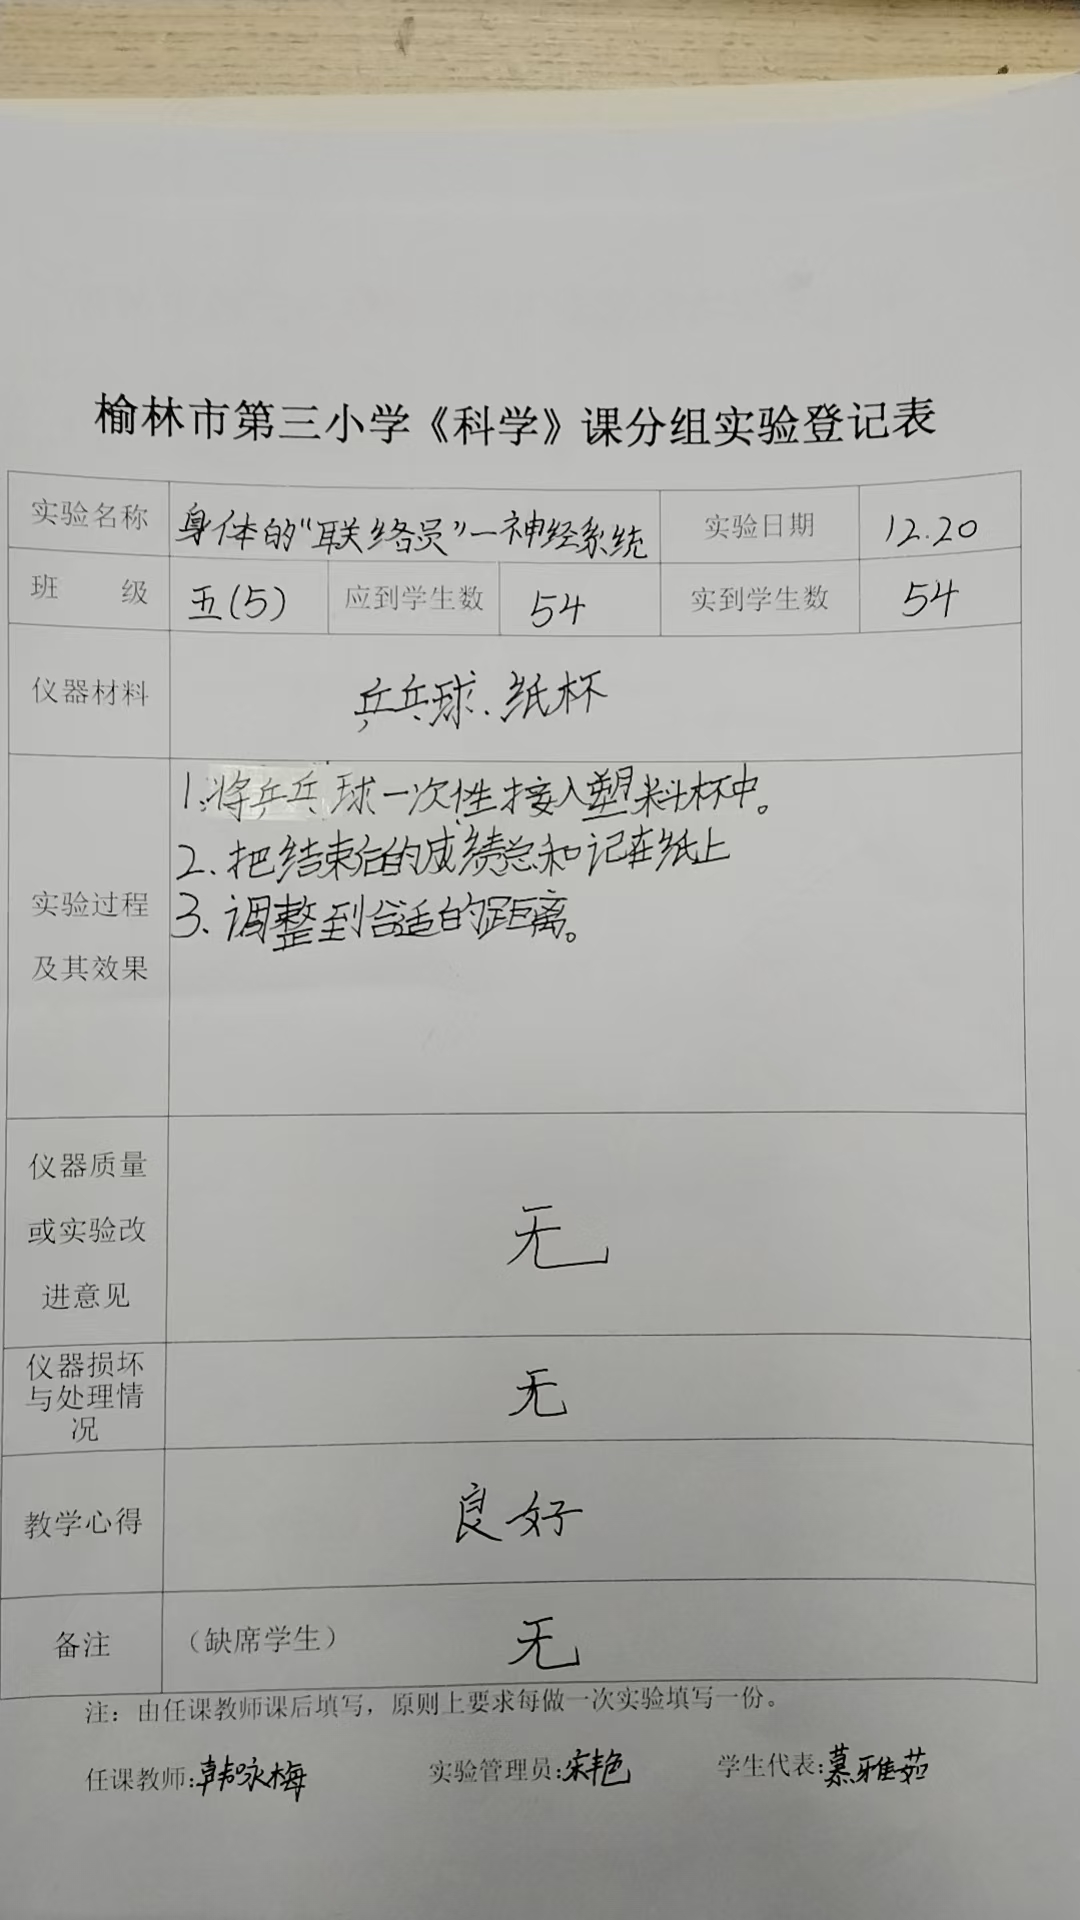 榆林市第三小学《科学》课分组实验登记表
实验名称 身体的“联络员”—神经系统 实验日期 12.20
班 级 五(5) 应到学生数 54 实到学生数 54
仪器材料 乒乓球、纸杯
实验过程
及其效果
1.将乒乓球一次性接入塑料杯中。
2.把结束后的成绩总和记在纸上
3.调整到合适的距离。
仪器质量
或实验改
进意见
无
仪器损坏
与处理情
况
无
教学心得 良好
备注 （缺席学生） 无
注：由任课教师课后填写，原则上要求每做一次实验填写一份。
任课教师:韩咏梅 实验管理员:宋艳 学生代表:慕雅茹